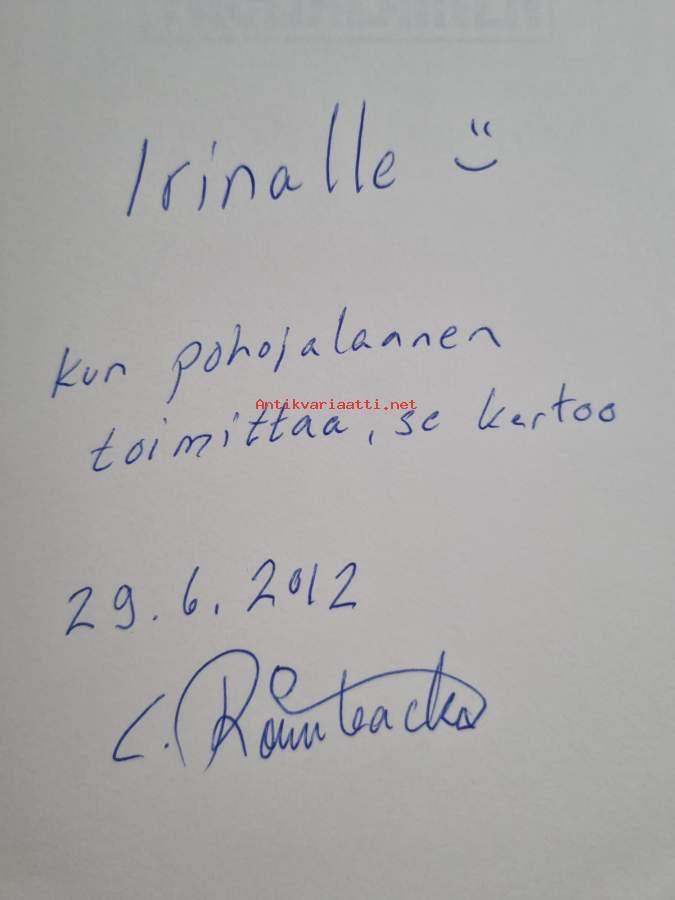 Irinalle
kun pohojalaanen
Antikvariaatti.net
toimittaa, se kertoo
29.6.2012